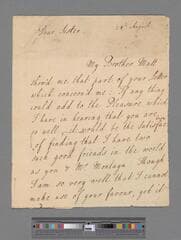 Dear Sister
August
My Brother Matt
shew'd me that part of your letter
which concerned me. If any thing
could add to the Pleasure which
I have in hearing that you are
so well, it would be the Satisfac
of finding that I have two
such good friends in the world
as you & Mr Montagu Though
I am so very well that I cannot
make use of your favour, yet it